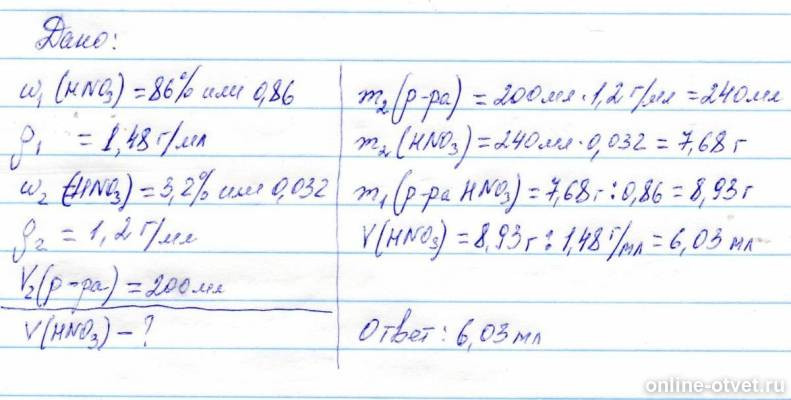 Дано:
w₁(HNO₃) = 86% или 0,86
ρ₁ = 1,48 г/мл
w₂(HNO₃) = 3,2% или 0,032
ρ₂ = 1,2 г/мл
V₂(р-ра) = 200 мл
V(HNO₃) – ?
m₂(р-ра) = 200 мл · 1,2 г/мл = 240 мл
m₂(HNO₃) = 240 мл · 0,032 = 7,68 г
m₁(р-ра HNO₃) = 7,68 г : 0,86 = 8,93 г
V(HNO₃) = 8,93 г : 1,48 г/мл = 6,03 мл
Ответ: 6,03 мл
online-otvet.ru